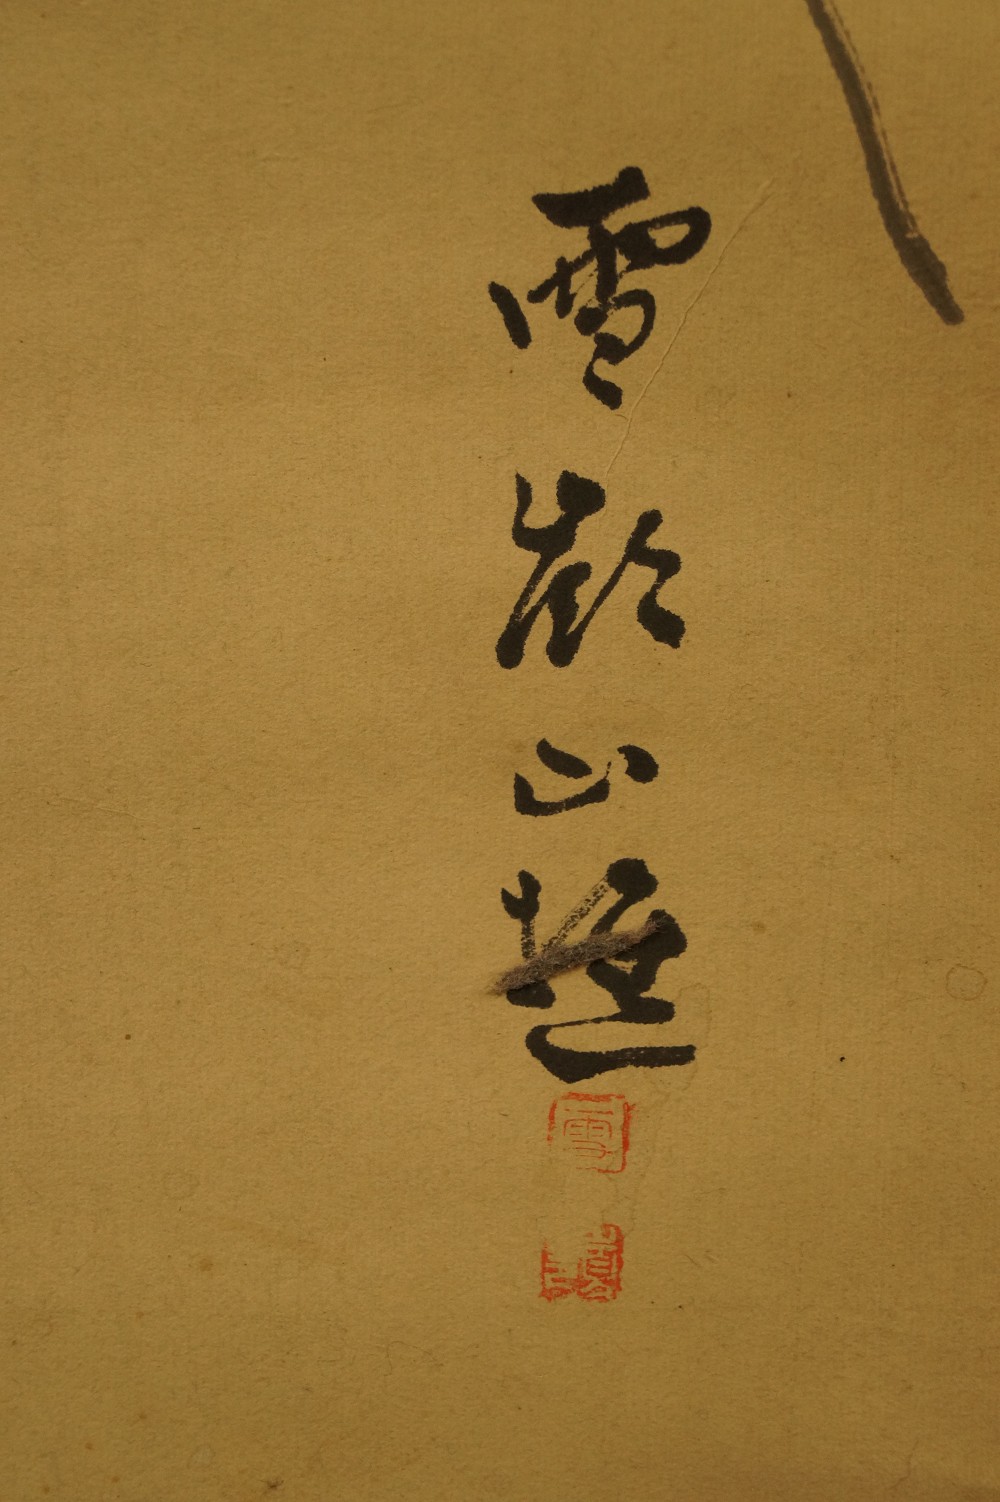 雪嶺山樵
雪